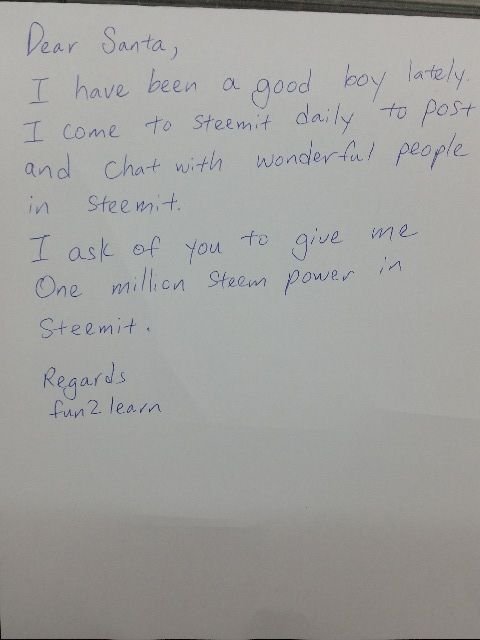 Dear Santa,
I have been a good boy lately.
I come to steemit daily to post
and chat with wonderful people
in steemit.
I ask of you to give me
One million steem power in
Steemit.
Regards
fun2learn